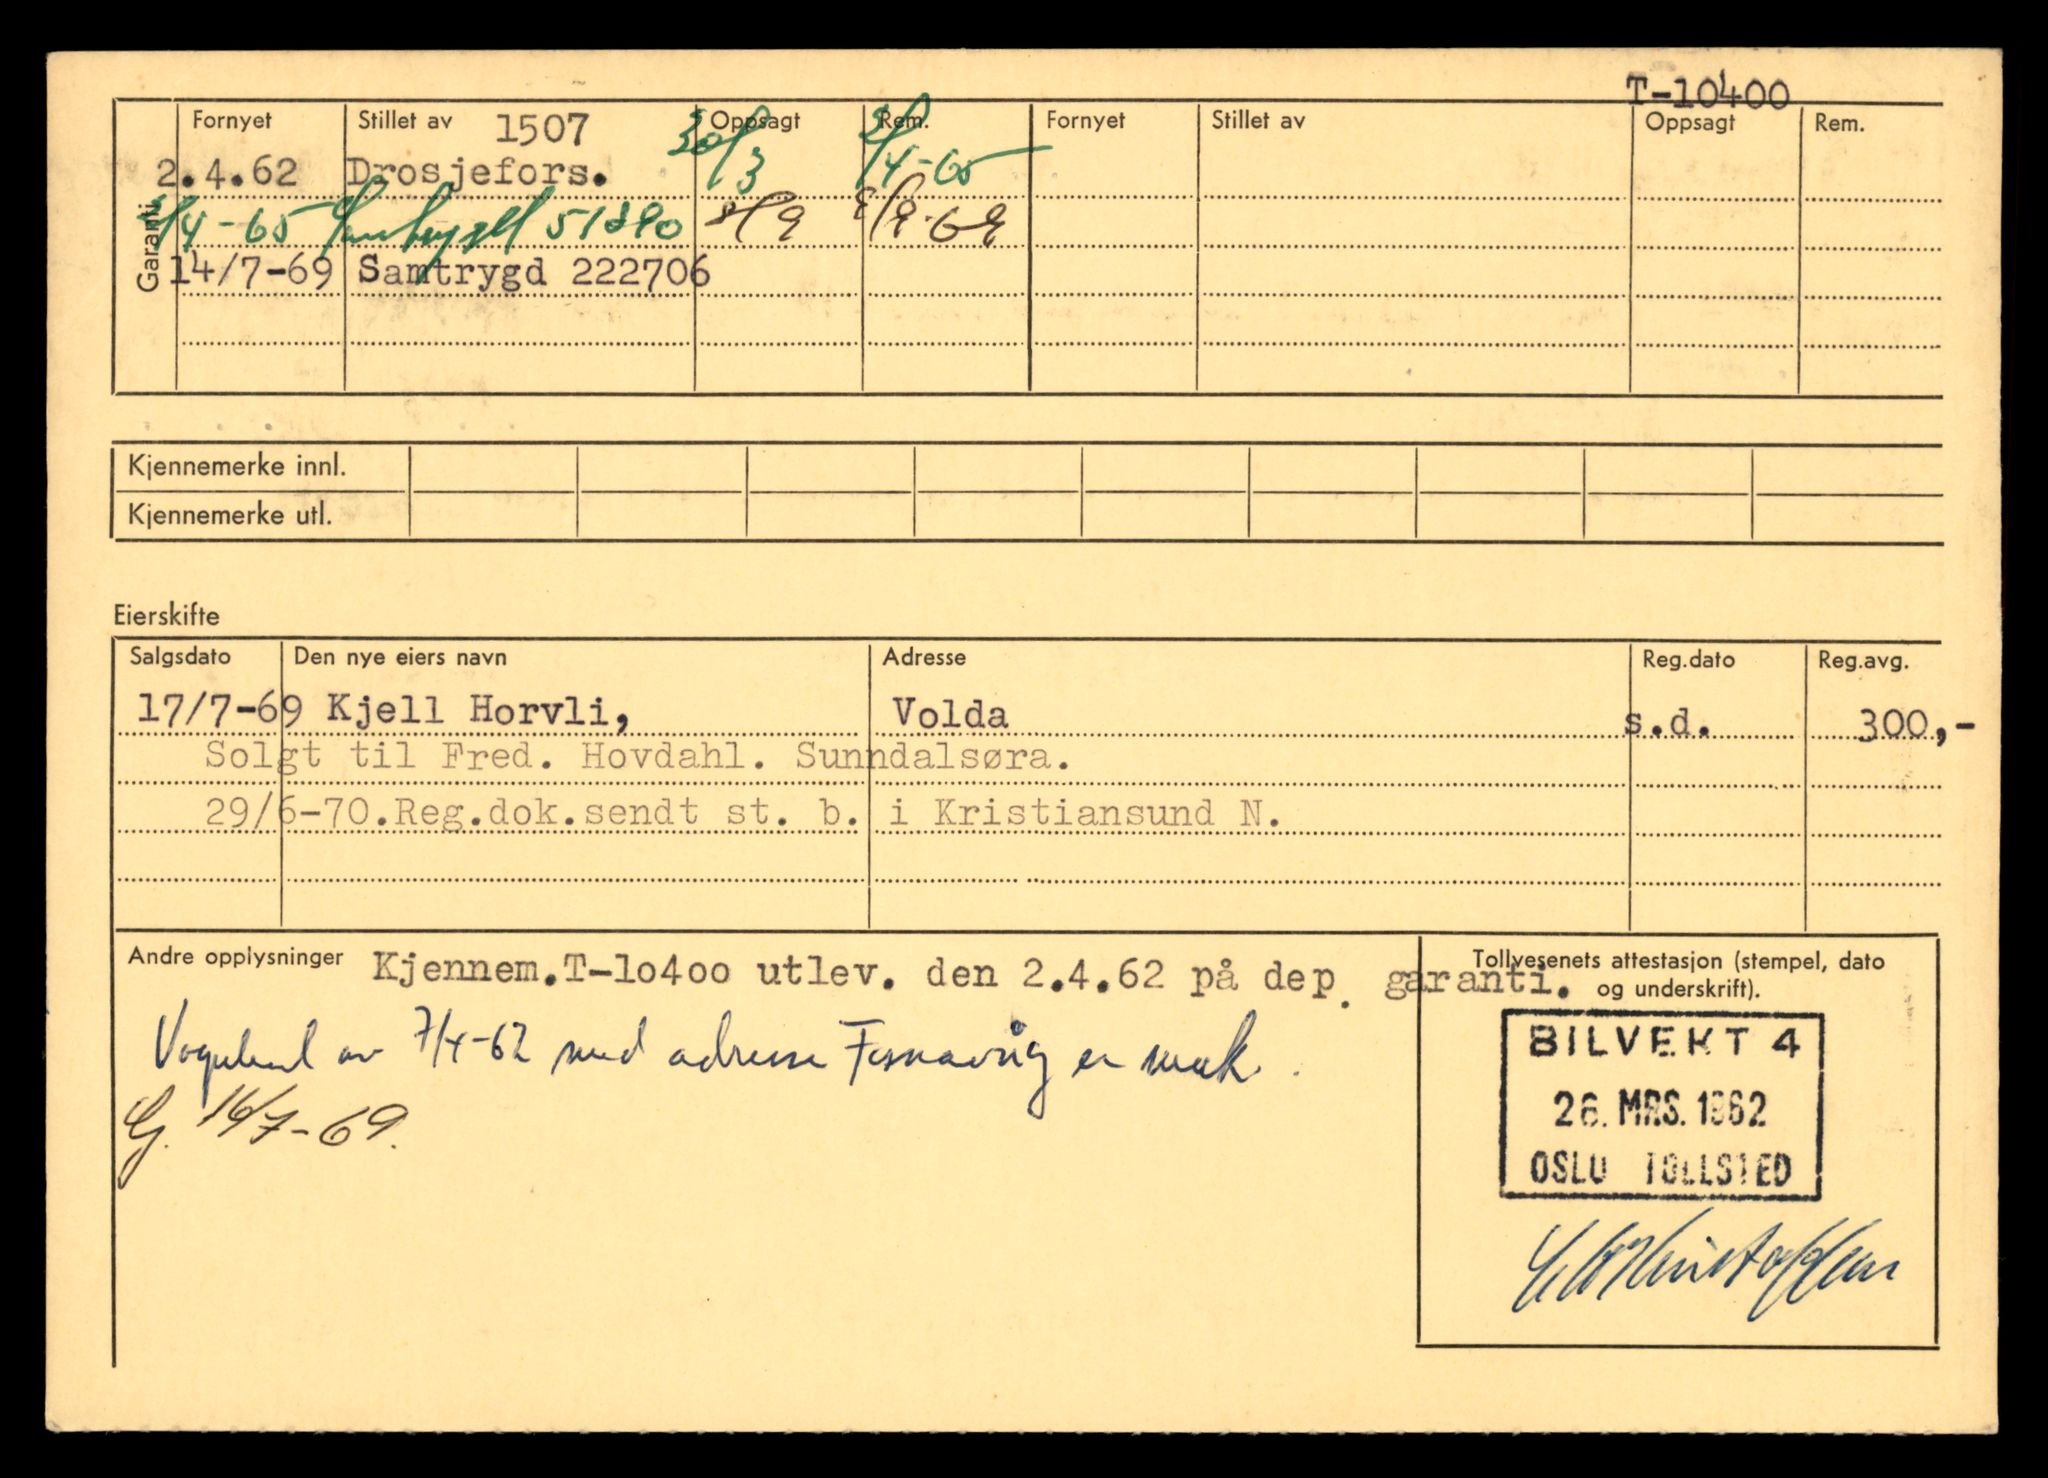 T-10400
Fornyet Stillet av 1507 Oppsagt Rem. Fornyet Stillet av Oppsagt Rem.
2.4.62 Drosjefors. 30/3 2/4-65
Garanti
2/4-65 Samtrygd 51890 8/9 8/9-69
14/7-69 Samtrygd 222706
Kjennemerke innl.
Kjennemerke utl.
Eierskifte
Salgsdato Den nye eiers navn Adresse Reg.dato Reg.avg.
17/7-69 Kjell Horvli, Volda s.d. 300,-
Solgt til Fred. Hovdahl. Sunndalsøra.
29/6-70.Reg.dok.sendt st. b. i Kristiansund N.
Andre opplysninger Kjennem.T-lo4oo utlev. den 2.4.62 på dep. garanti.
Tollvesenets attestasjon (stempel, dato
og underskrift).
Vognkort av 7/4-62 med adresse Fosnavåg er mak.
G. 16/7-69.
BILVEKT 4
26. MRS. 1962
OSLO TOLLSTED